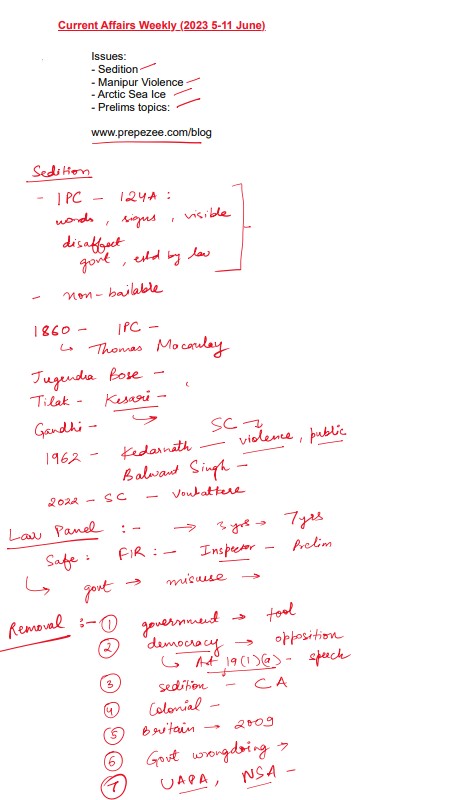 Current Affairs Weekly (2023 5-11 June)
Issues:
- Sedition
- Manipur Violence
- Arctic Sea Ice
- Prelims topics:
www.prepezee.com/blog
Sedition
- IPC - 124A :
words, signs, visible
disaffect
govt, estd by law
- non-bailable
1860 - IPC -
↳ Thomas Macaulay
Jugendra Bose -
Tilak - Kesari -
Gandhi - →
SC →
1962 - Kedarnath — violence, public
Balwant Singh -
2022 - SC - Vombatkere
Law Panel :- → 3 yrs → 7yrs
Safe : FIR :- Inspector - Prelim
↳ govt → misuse →
Removal :- ① government → tool
② democracy → opposition
↳ Art 19(1)(a) - speech
③ sedition - CA
④ Colonial -
⑤ Britain → 2009
⑥ Govt wrongdoing →
⑦ UAPA, NSA -